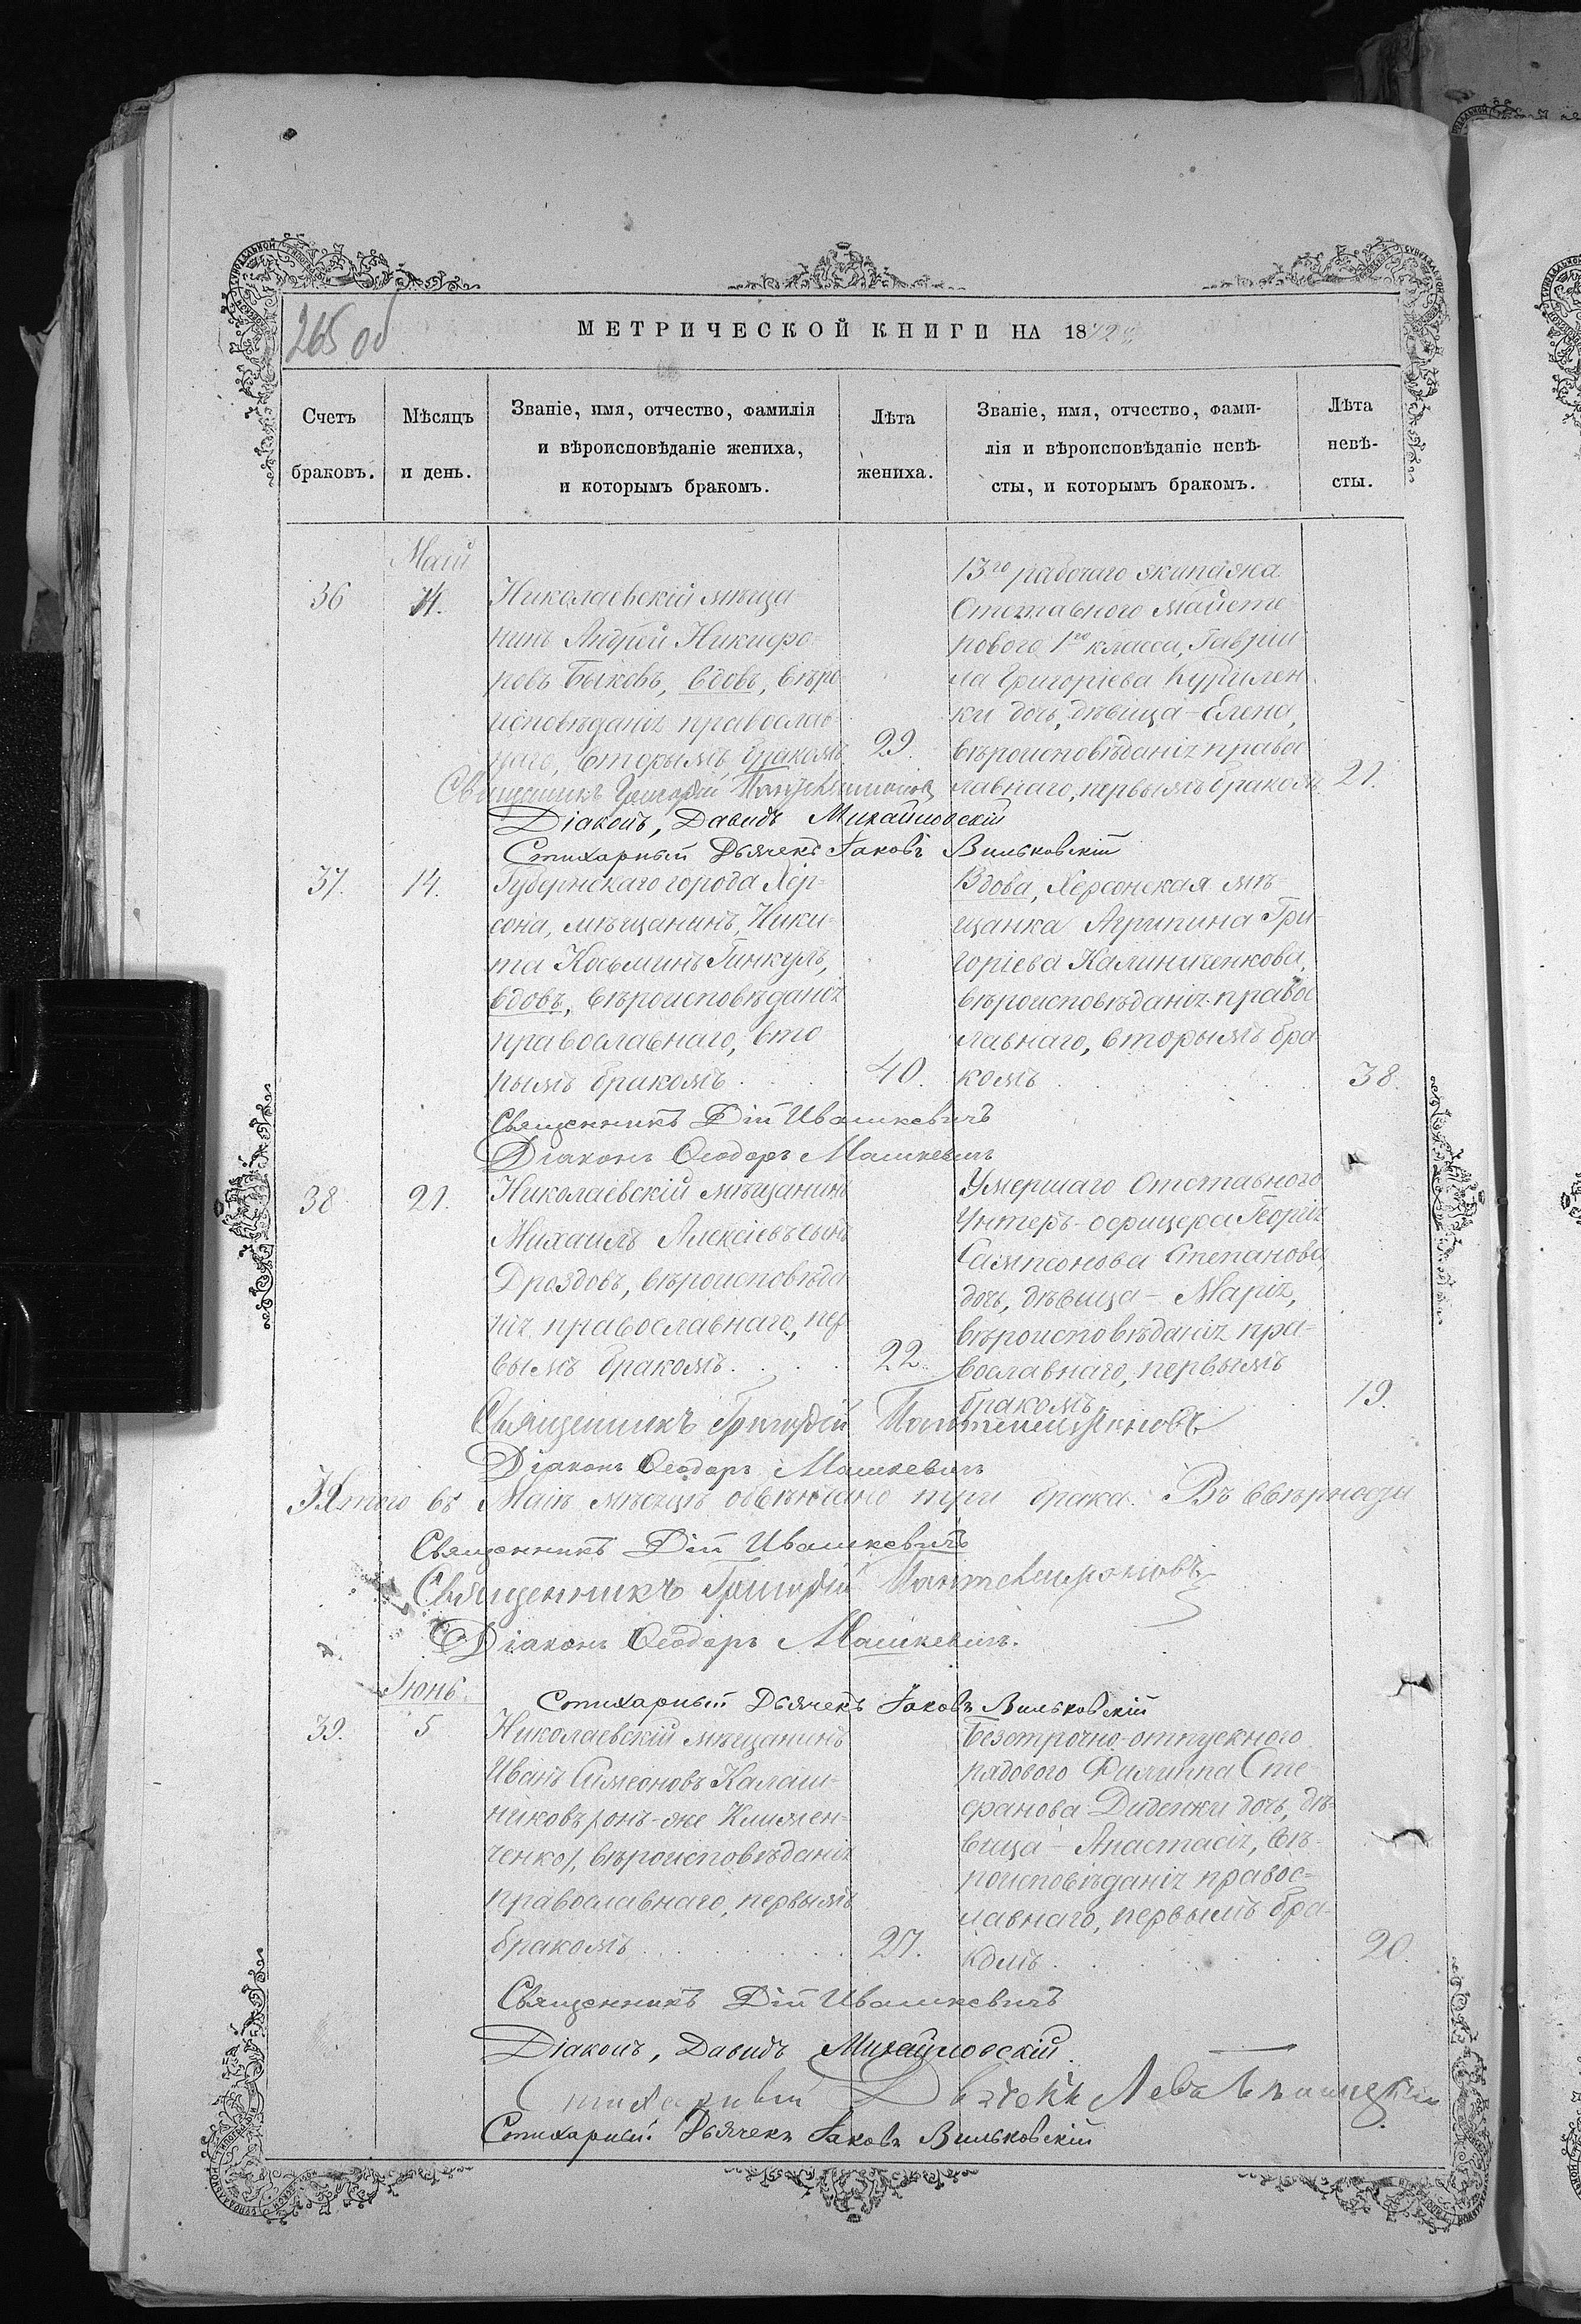 265 об
МЕТРИЧЕСКОЙ КНИГИ НА 1872
Счетъ браковъ.
Мѣсяцъ и день.
Званіе, имя, отчество, фамилія
и вѣроисповѣданіе жениха,
и которымъ бракомъ.
Лѣта жениха.
Званіе, имя, отчество, фами-
лія и вѣроисповѣданіе невѣ-
сты, и которымъ бракомъ.
Лѣта
невѣ-
сты.
Май
36
14.
Николаевскій мѣща-
нинъ Андрей Никифо-
ровъ Быковъ, вдовъ, вѣро
исповѣданія православ-
наго, вторымъ бракомъ
29.
13го рабочаго экипажа
Отставного Майсте
рового 1го класса, Гаврии
ла Григоріева Курилен
ки дочь, дѣвица - Елена,
вѣроисповѣданія правос
лавнаго, первымъ бракомъ
21.
Священникъ Григорій Пантелеимоновъ
Діаконъ, Давидъ Михайловскій
Стихарный Дьячекъ Іаковъ Вильковскій
37.
14.
Губернскаго города Хер-
сона, мѣщанинъ, Ники-
та Косьминъ Гинкулъ,
вдовъ, вѣроисповѣданія
православнаго, вто-
рымъ бракомъ
40.
Вдова, Херсонская мѣ-
щанка Агрипина Гри-
горіева Калиниченкова,
вѣроисповѣданія правос
лавнаго, вторымъ бра-
комъ
38.
Священникъ Дій Ивашкевичъ
Діаконъ Ѳеодоръ Машкевичъ
38
21.
Николаевскій мѣщанинъ
Михаилъ Алексіевъ сынъ
Дроздовъ, вѣроисповѣда
нія православнаго, пер
вымъ бракомъ
22.
Умершаго Отставного
Унтеръ-офицера Георгія
Сампсонова Степанова,
дочь, дѣвица - Марія,
вѣроисповѣданія пра-
вославнаго, первымъ
бракомъ
19.
Священникъ Григорій Пантелеимоновъ
Діаконъ Ѳеодоръ Машкевичъ
Итого въ Маіѣ мѣсяцѣ обвѣнчано три брака. Въ вѣрности
Священникъ Дій Ивашкевичъ
Священникъ Григорій Пантелеимоновъ
Діаконъ Ѳеодоръ Машкевичъ.
Стихарный Дьячекъ Іаковъ Вильковскій
Іюнь
39.
5
Николаевскій мѣщанинъ
Иванъ Симеоновъ Калаш-
никовъ /онъ-же Климен-
ченко/, вѣроисповѣданія
православнаго, первымъ
бракомъ
27.
Безсрочно-отпускного
рядового Филиппа Сте
фанова Диденки дочь, дѣ-
вица - Анастасія, вѣ-
роисповѣданія правос-
лавнаго, первымъ бра-
комъ
20.
Священникъ Дій Ивашкевичъ
Діаконъ, Давидъ Михайловскій.
Стихарный Дьячекъ Левъ
Стихарный Дьячекъ Іаковъ Вильковскій